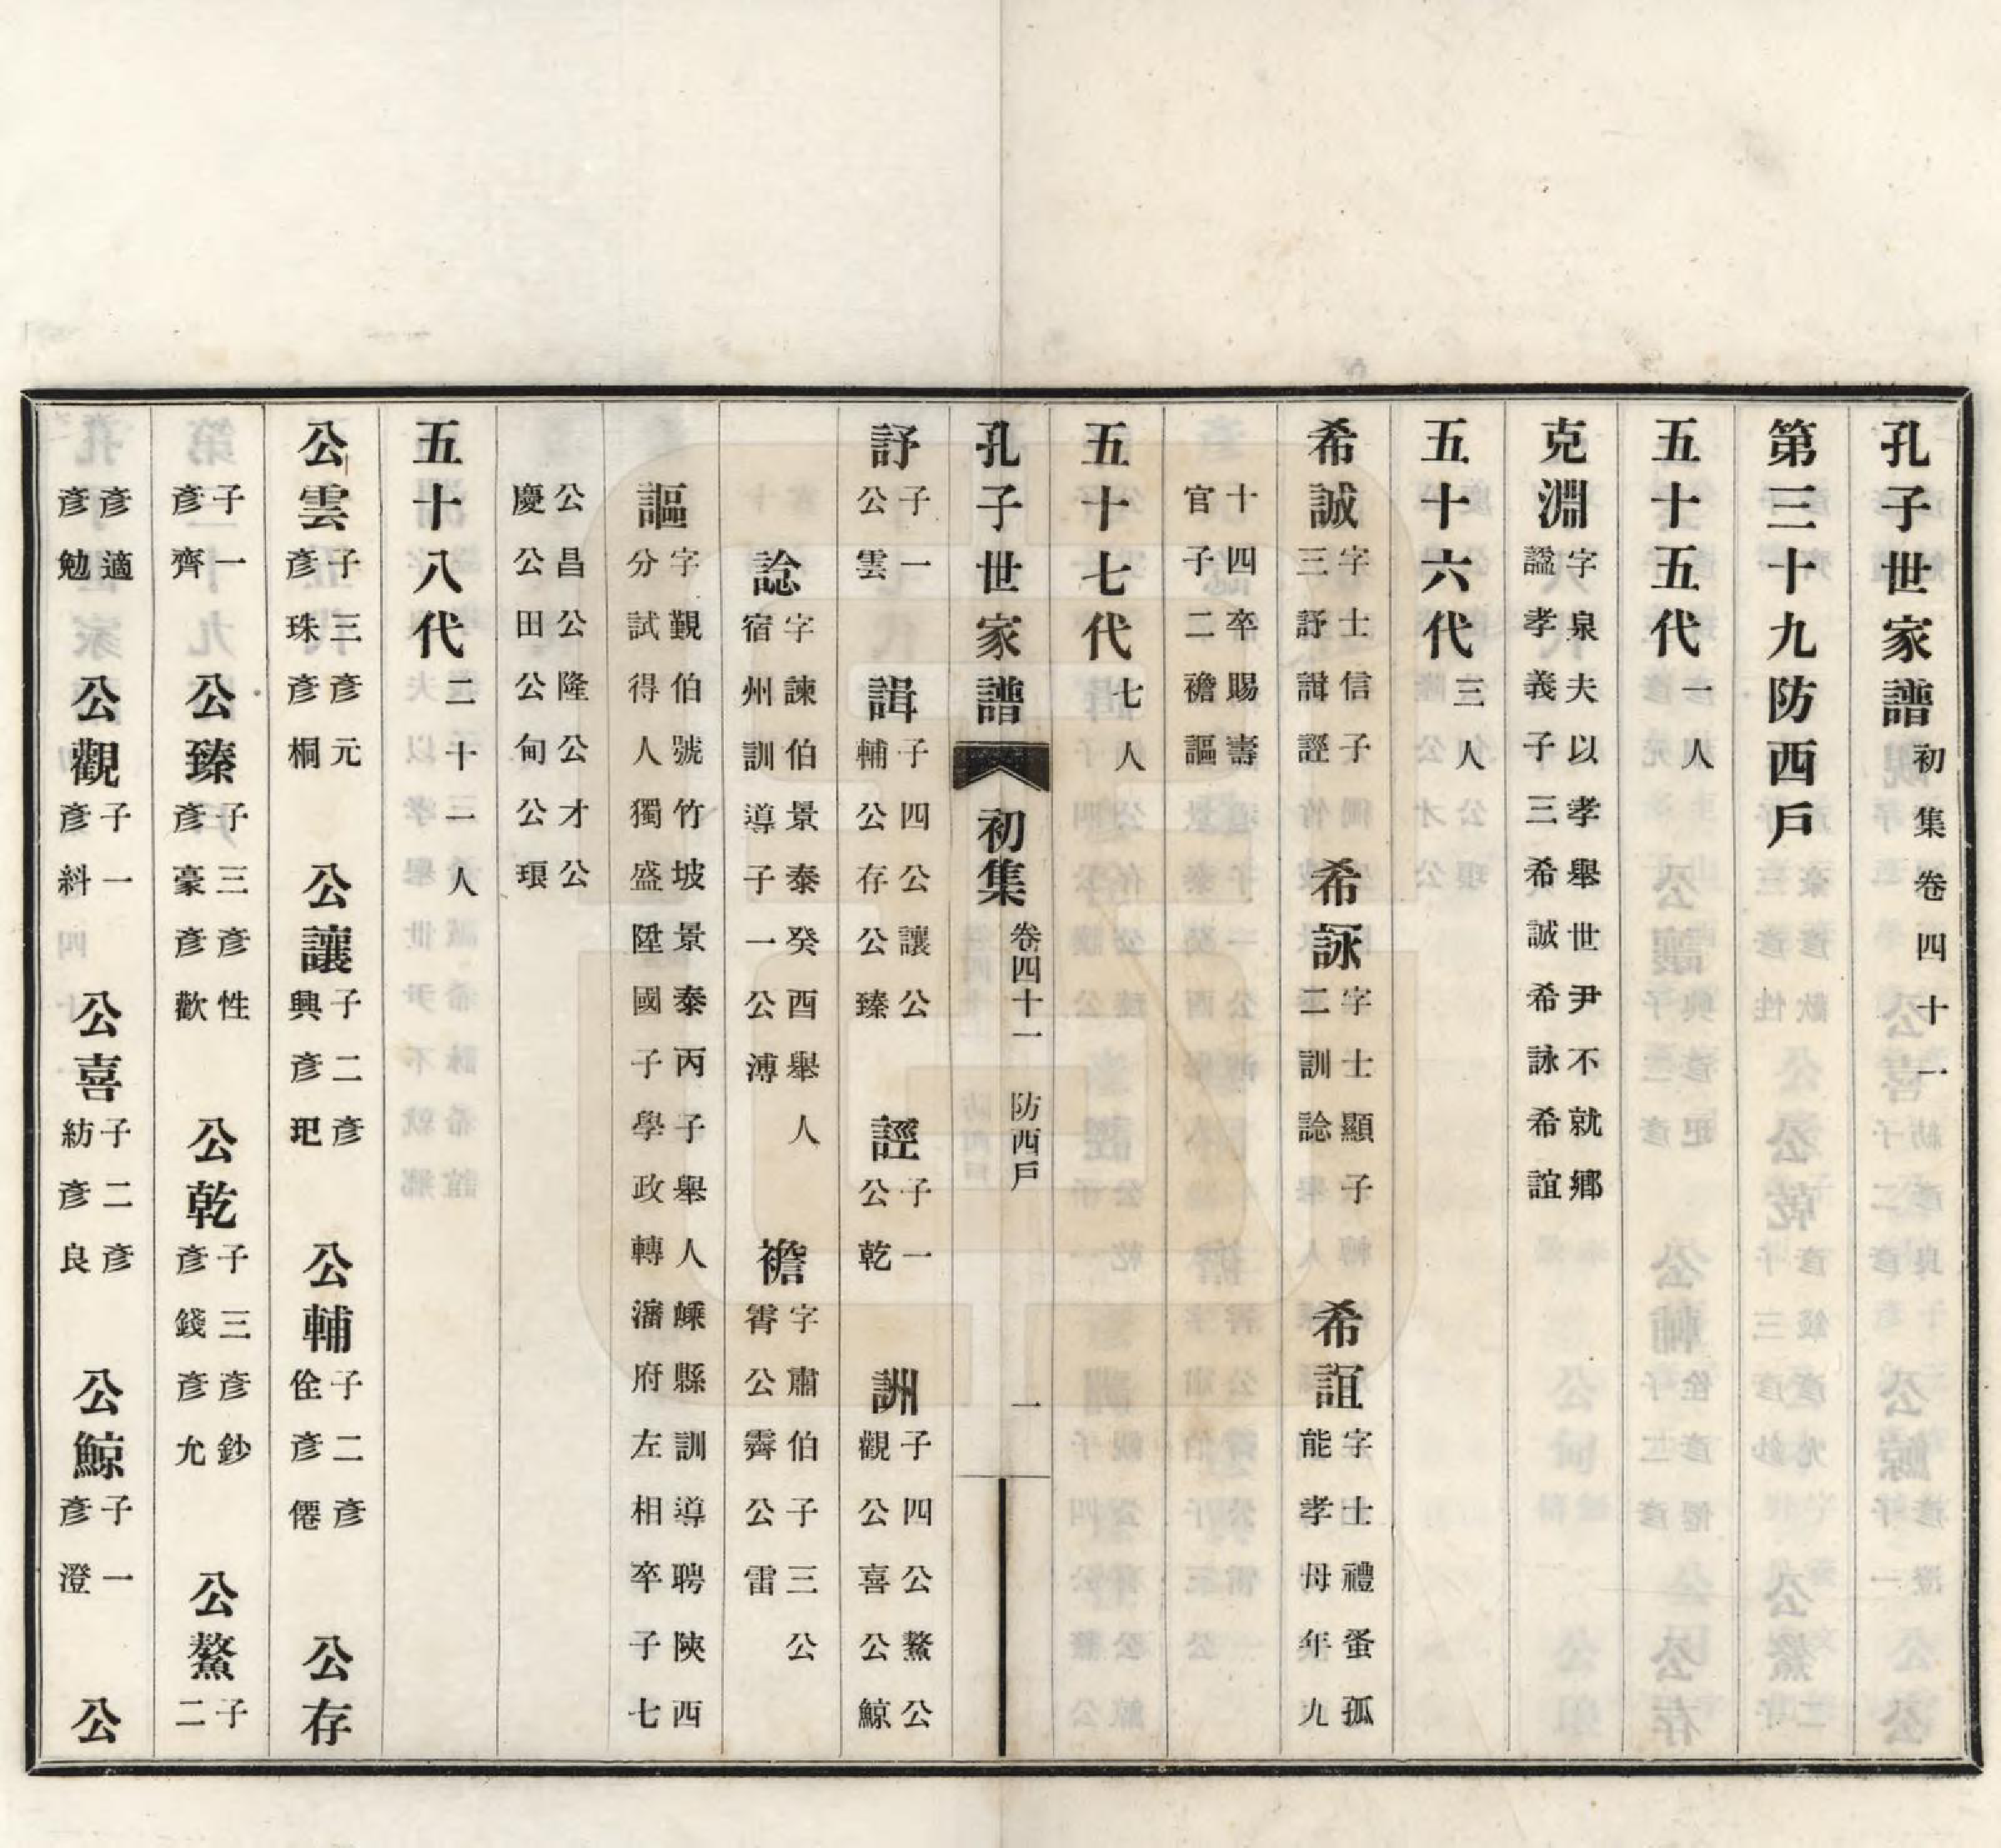 孔子世家譜初集卷四十一
第三十九防西戶
五十五代一人
克淵字泉夫以孝舉世尹不就鄉謚孝義子三希誠希詠希誼
五十六代三人
希誠字士信子三訏諿誙 希詠字士顯子二訓諗 希誼字士禮蚤孤能孝母年九
十四卒賜壽官子二襜謳
五十七代七人
孔子世家譜 初集 卷四十一 防西戶 一
訏子一公雲 諿子四公讓公輔公存公臻 誙子一公乾 訓子四公鰲公觀公喜公鯨
諗字諫伯景泰癸酉舉人宿州訓導子一公溥 襜字肅伯子三公霄公霽公雷
謳字觀伯號竹坡景泰丙子舉人嵊縣訓導聘陝西分試得人獨盛陞國子學政轉瀋府左相卒子七
公昌公隆公才公慶公田公甸公琅
五十八代二十三人
公雲子三彥元彥珠彥桐 公讓子二彥興彥玘 公輔子二彥佺彥僊 公存
子一彥齊 公臻子三彥性彥豪彥歡 公乾子三彥鈔彥錢彥允 公鰲子二
彥適彥勉 公觀子一彥糾 公喜子二彥紡彥良 公鯨子一彥澄 公